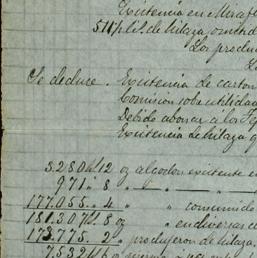 Existencia en Miraf
511 lbs de hilaza, omitid
Los produc
Se deduce. Existencia de carton
Comision sobre utilidad
Debido abonar a los Te
Existencia de hilaza
3.280 lb 12 oz algodon existente e
971 " 8 " "
177.055 " 4 " " consumido
181.307 lb 8 oz " en diversas c
173.775 " 2 " produjeron de hilaza
7.532 lb 6 oz